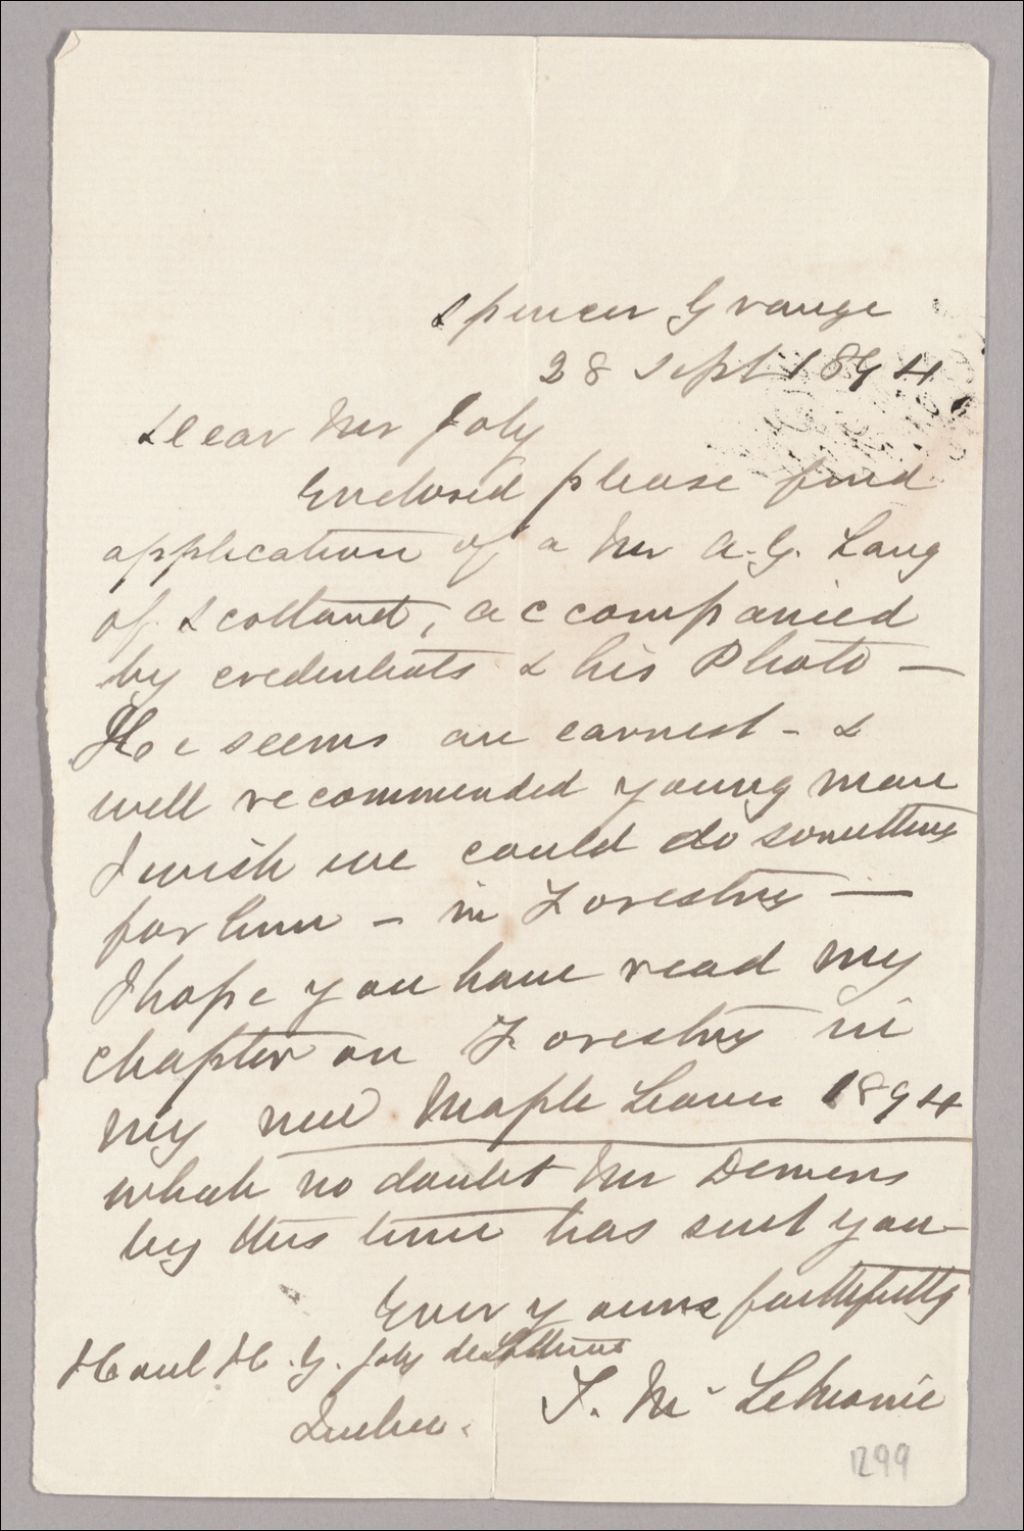 Spencer Grange
28 Sept 1894
Dear Mr Joly
Enclosed please find
application of a Mr A.G. Lang
of Scotland, accompanied
by credentials & his Photo —
He seems an earnest - &
well recommended young man
I wish we could do something
for him — in Forestry —
I hope you have read my
chapter on Forestry in
my new Maple Leaves 1894
which no doubt Mr Demers
by this time has sent you —
Ever yours faithfully
Honl H. G. Joly de Lotbiniere
Quebec.
J. M. LeMoine
1299